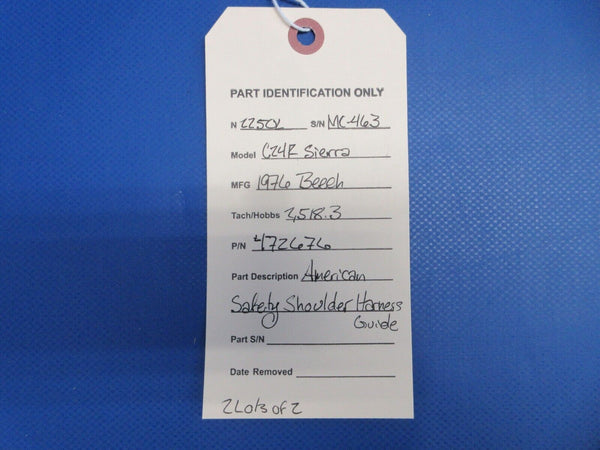 PART IDENTIFICATION ONLY
N 2250L S/N MC-463
Model C24R Sierra
MFG 1976 Beech
Tach/Hobbs 2,518.3
P/N 4172676
Part Description American
Safety Shoulder Harness
Guide
Part S/N
Date Removed
2 Lots of 2